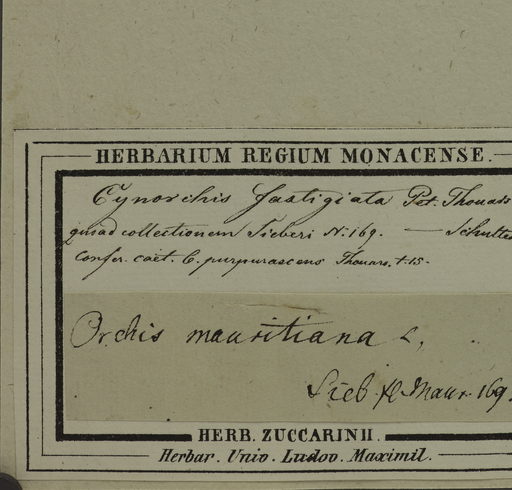 HERBARIUM REGIUM MONACENSE.
Cynorchis fastigiata Pet. Thouars
quoad collectionem Sieberi N. 169. — Schultes
Confer. caet. C. purpurascens Thouars. t. 15.
Orchis mauritiana
Sieb. fl. Maur. 169.
HERB. ZUCCARINII.
Herbar. Univ. Ludov. Maximil.